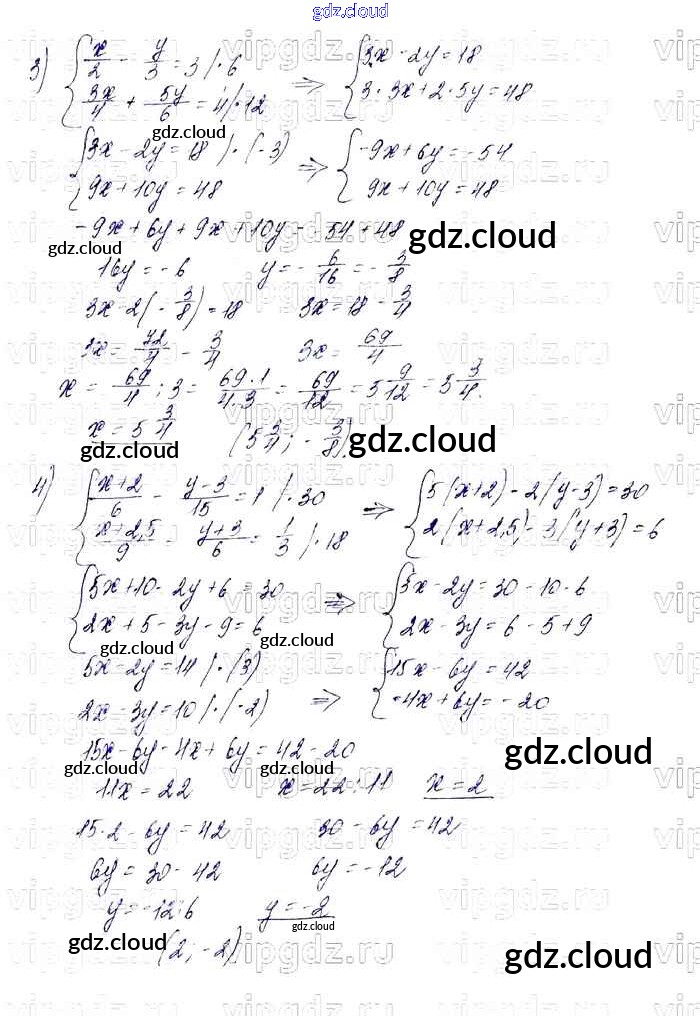 gdz.cloud
3) { x/2 - y/3 = 3 /·6 => { 3x - 2y = 18
3x/4 + 5y/6 = 4/·12 3·3x + 2·5y = 48
gdz.cloud
{ 3x - 2y = 18 /·(-3) => { -9x + 6y = -54
9x + 10y = 48 9x + 10y = 48
-9x + 6y + 9x + 10y = -54 + 48
gdz.cloud gdz.cloud
16y = -6 y = -6/16 = -3/8
3x - 2(-3/8) = 18 3x = 18 - 3/4
3x = 72/4 - 3/4 3x = 69/4
x = 69/4 : 3 = 69·1/4·3 = 69/12 = 5 9/12 = 5 3/4.
x = 5 3/4 (5 3/4; -3/8).
gdz.cloud gdz.cloud
4) { x+2/6 - y-3/15 = 1 /·30 => { 5(x+2) - 2(y-3) = 30
x+2,5/9 - y+3/6 = 1/3 /·18 2(x+2,5) - 3(y+3) = 6
{ 5x + 10 - 2y + 6 = 30 => { 5x - 2y = 30 - 10 - 6
2x + 5 - 3y - 9 = 6 2x - 3y = 6 - 5 + 9
gdz.cloud gdz.cloud
5x - 2y = 14 /·(3) { 15x - 6y = 42
2x - 3y = 10 /·(-2) => -4x + 6y = -20
gdz.cloud
15x - 6y - 4x + 6y = 42 - 20
gdz.cloud gdz.cloud
11x = 22 x = 22 : 11 x = 2
15·2 - 6y = 42 30 - 6y = 42
6y = 30 - 42 6y = -12
y = -12:6 y = -2
gdz.cloud
gdz.cloud (2; -2)
gdz.cloud